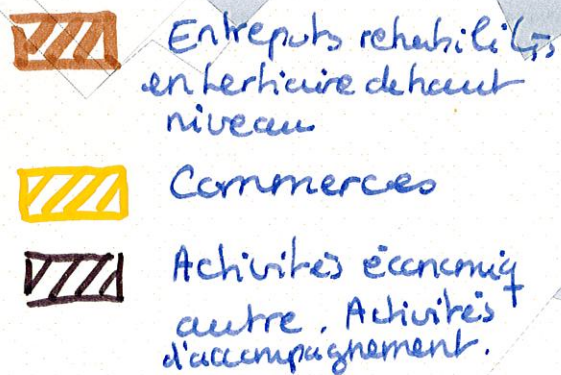 Entrepots rehabilités
en tertiaire de haut
niveau
Commerces
Activités économiq
autre. Activités
d'accompagnement.